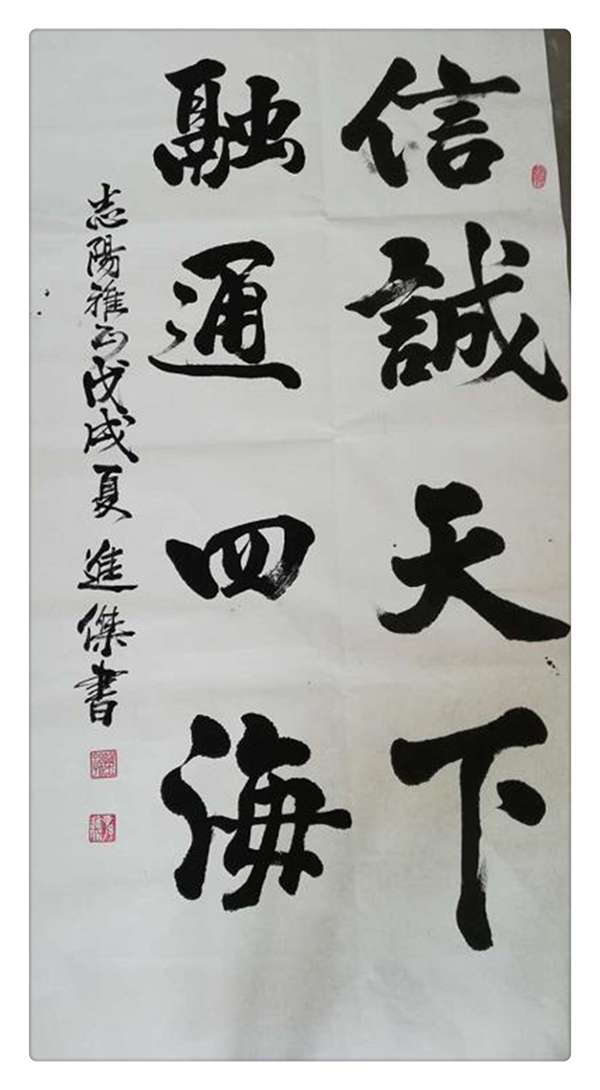 信誠天下
融通四海
志陽雅正戊戌夏進傑書